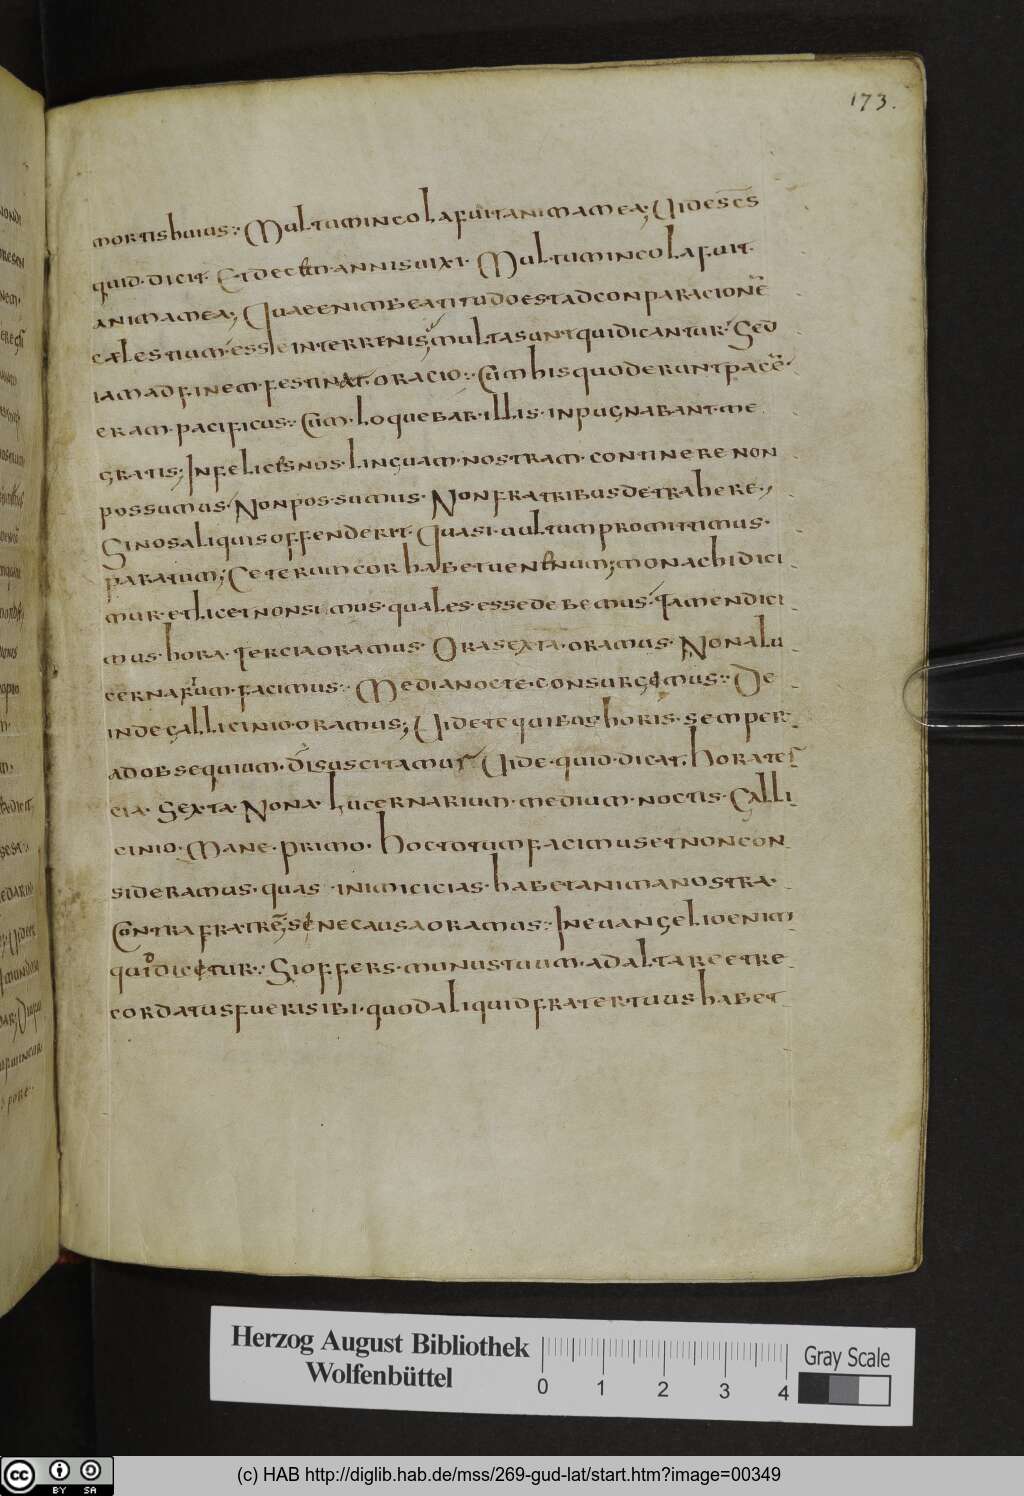 173.
mortis huius: Multum incola fuit anima mea; Vides c̄s
quid dicit. Et decem annis uixi. Multum incola fuit
anima mea; Quae enim beatitudo est ad conparacionē
caelestium esse in terrenis; multa sunt qui dicantur. Sed
iam ad finem festinat oracio: Cum his qui oderunt pacē
eram pacificus: Cum loquebar illis inpugnabant me
gratis; Infelices nos linguam nostram continere non
possumus. Non possumus. Non fratribus detrahere,
Si nos aliquis offenderit. Quasi uultum promittimus
paratum; Ceterum cor habet uenenum; monachi dici
mur. et licet non simus quales esse debemus. Tamen dici
mus hora tercia oramus. Ora sexta oramus. Nona lu
cernarium facimus: Media nocte consurgimus: De
inde gallicinio oramus; Videte quibus horis semper
ad obsequium dī suscitamur. Vide quid dicat. hora ter
cia. Sexta. Nona. Lucernarium. medium noctis. Galli
cinio. Mane primo. hoc totum facimus et non con
sideramus. quas inimicicias habet anima nostra.
Contra fratres sine causa oramus: In euangelio enim
quid dicitur: Si offers munus tuum ad altare et re
cordatus fueris ibi. quod aliquid frater tuus habet
Herzog August Bibliothek
Wolfenbüttel
0 1 2 3 4
Gray Scale
cc BY SA
(c) HAB http://diglib.hab.de/mss/269-gud-lat/start.htm?image=00349